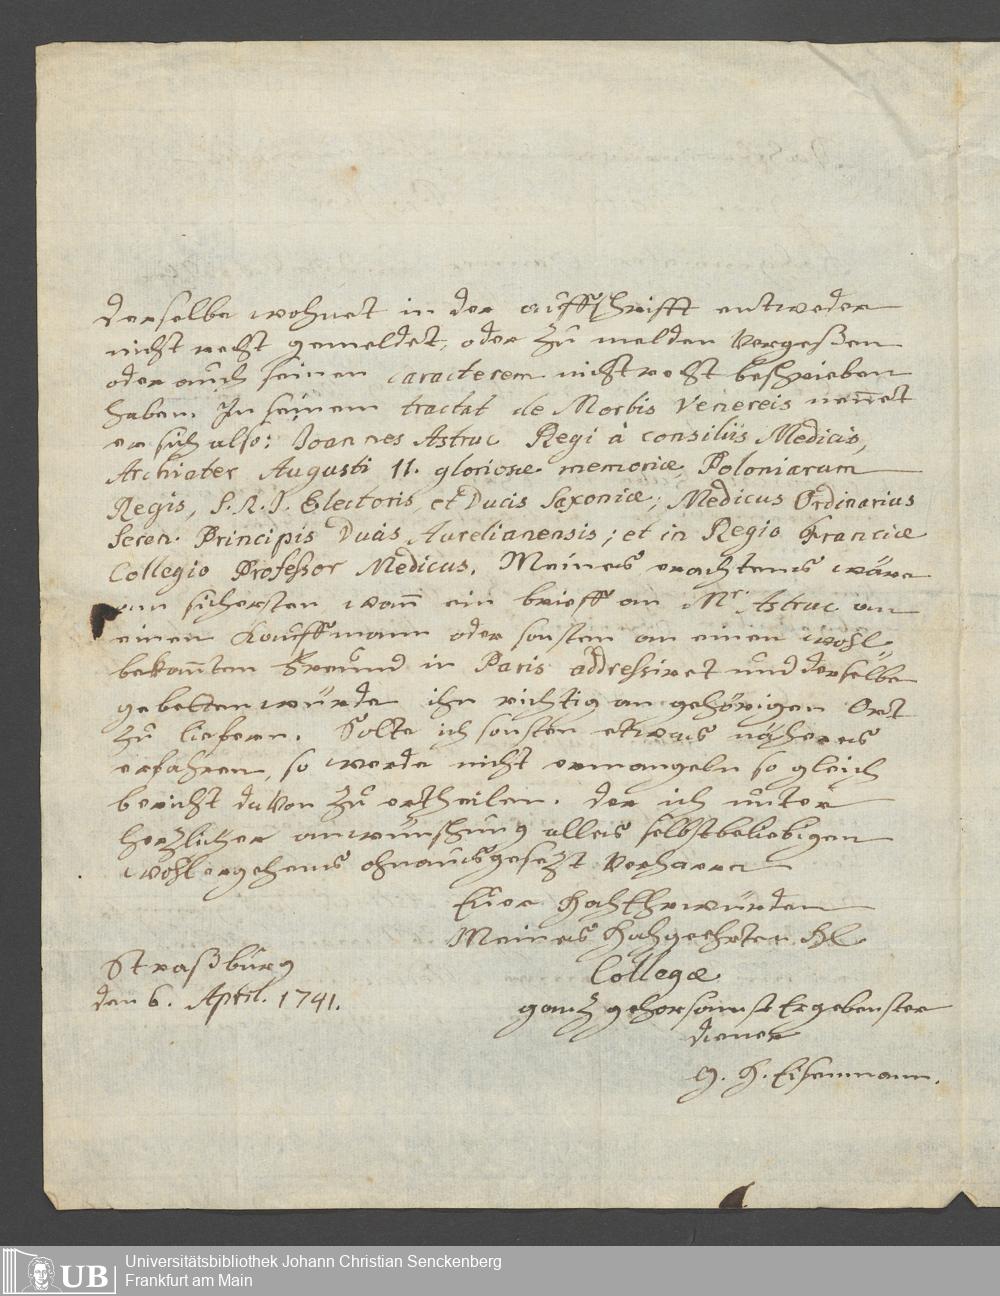 derselbe wohnet in der auffschrifft entweder
nicht recht gemeldet, oder zu melden Vergeßen
oder auch seinen caracterem nicht recht beschrieben
haben. In seinem tractat de Morbis Venereis nennet
er sich also: Joannes Astruc Regi à consiliis Medicis,
Archiater Augusti II. gloriosæ memoriæ, Poloniarum
Regis, S.R.I. Electoris, et Ducis Saxoniæ; Medicus Ordinarius
Seren. Principis Ducis Aurelianensis; et in Regio Franciæ
Collegio Professor Medicus. Meines erachtens wäre
am sichersten wann ein brieff an Mr. Astruc an
einen Kauffmann oder sonsten an einen wohl
bekannten Freund in Paris addressiret und derselbe
gebetten würde ihn richtig an gehörigen Ort
zu liefern. Solte ich sonsten etwas näheres
erfahren, so werde nicht ermangeln so gleich
bericht davon zu ertheilen. der ich unter
herzlicher anwünschung alles selbstbeliebigen
wohlergehens ohnausgesetzt Verharre
Euer HochEhrwürden
Meines Hochgeehrten H
Collegæ
Straßburg
den 6. April. 1741.
gantz gehorsamst Ergebenster
diener
G. H. Eisenmann.
UB
Universitätsbibliothek Johann Christian Senckenberg
Frankfurt am Main